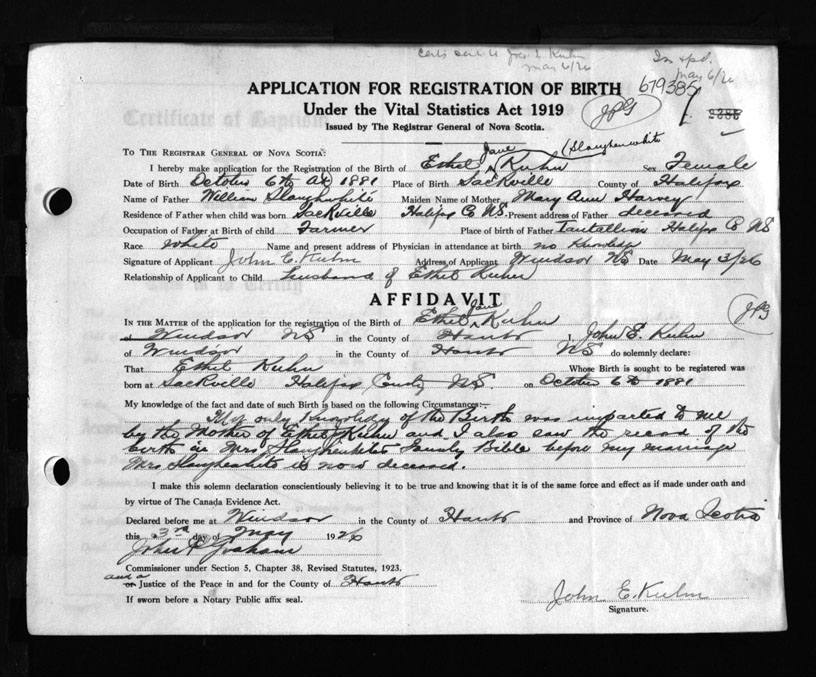 May 6/26
May 6/26
APPLICATION FOR REGISTRATION OF BIRTH 679385
Under the Vital Statistics Act 1919 JPG
Issued by The Registrar General of Nova Scotia.
TO THE REGISTRAR GENERAL OF NOVA SCOTIA: Jane (Slaughenwhite
I hereby make application for the Registration of the Birth of Ethel Kuhn Sex Female
Date of Birth October 6th 1881 Place of Birth Sackville County of Halifax
Name of Father William Slaughwhite Maiden Name of Mother Mary Ann Harvey
Residence of Father when child was born Sackville Halifax Co NS. Present address of Father deceased
Occupation of Father at Birth of child Farmer Place of birth of Father Tantallion Halifax Co NS
Race White Name and present address of Physician in attendance at birth no knowledge
Signature of Applicant John E. Kuhn Address of Applicant Windsor NS Date May 3/26
Relationship of Applicant to Child Husband of Ethel Kuhn
AFFIDAVIT
Jane JPG
IN THE MATTER of the application for the registration of the Birth of Ethel Kuhn
of Windsor NS in the County of Hants I, John E. Kuhn
of Windsor in the County of Hants NS do solemnly declare:
That Ethel Kuhn Whose Birth is sought to be registered was
born at Sackville Halifax County NS. on October 6th 1881
My knowledge of the fact and date of such Birth is based on the following Circumstances:—
My only knowledg of the Birth was imparted to me
by the Mother of Ethel Kuhn and I also saw the record of the
birth in Mrs Slaughenwhites Family Bible before my marriage
Mrs Slaughenwhite is now deceased.
I make this solemn declaration conscientiously believing it to be true and knowing that it is of the same force and effect as if made under oath and
by virtue of The Canada Evidence Act.
Declared before me at Windsor in the County of Hants and Province of Nova Scotia
this 3rd day of May 1926
John Graham
Commissioner under Section 5, Chapter 38, Revised Statutes, 1923.
and a
or Justice of the Peace in and for the County of Hants
If sworn before a Notary Public affix seal. John E. Kuhn
Signature.